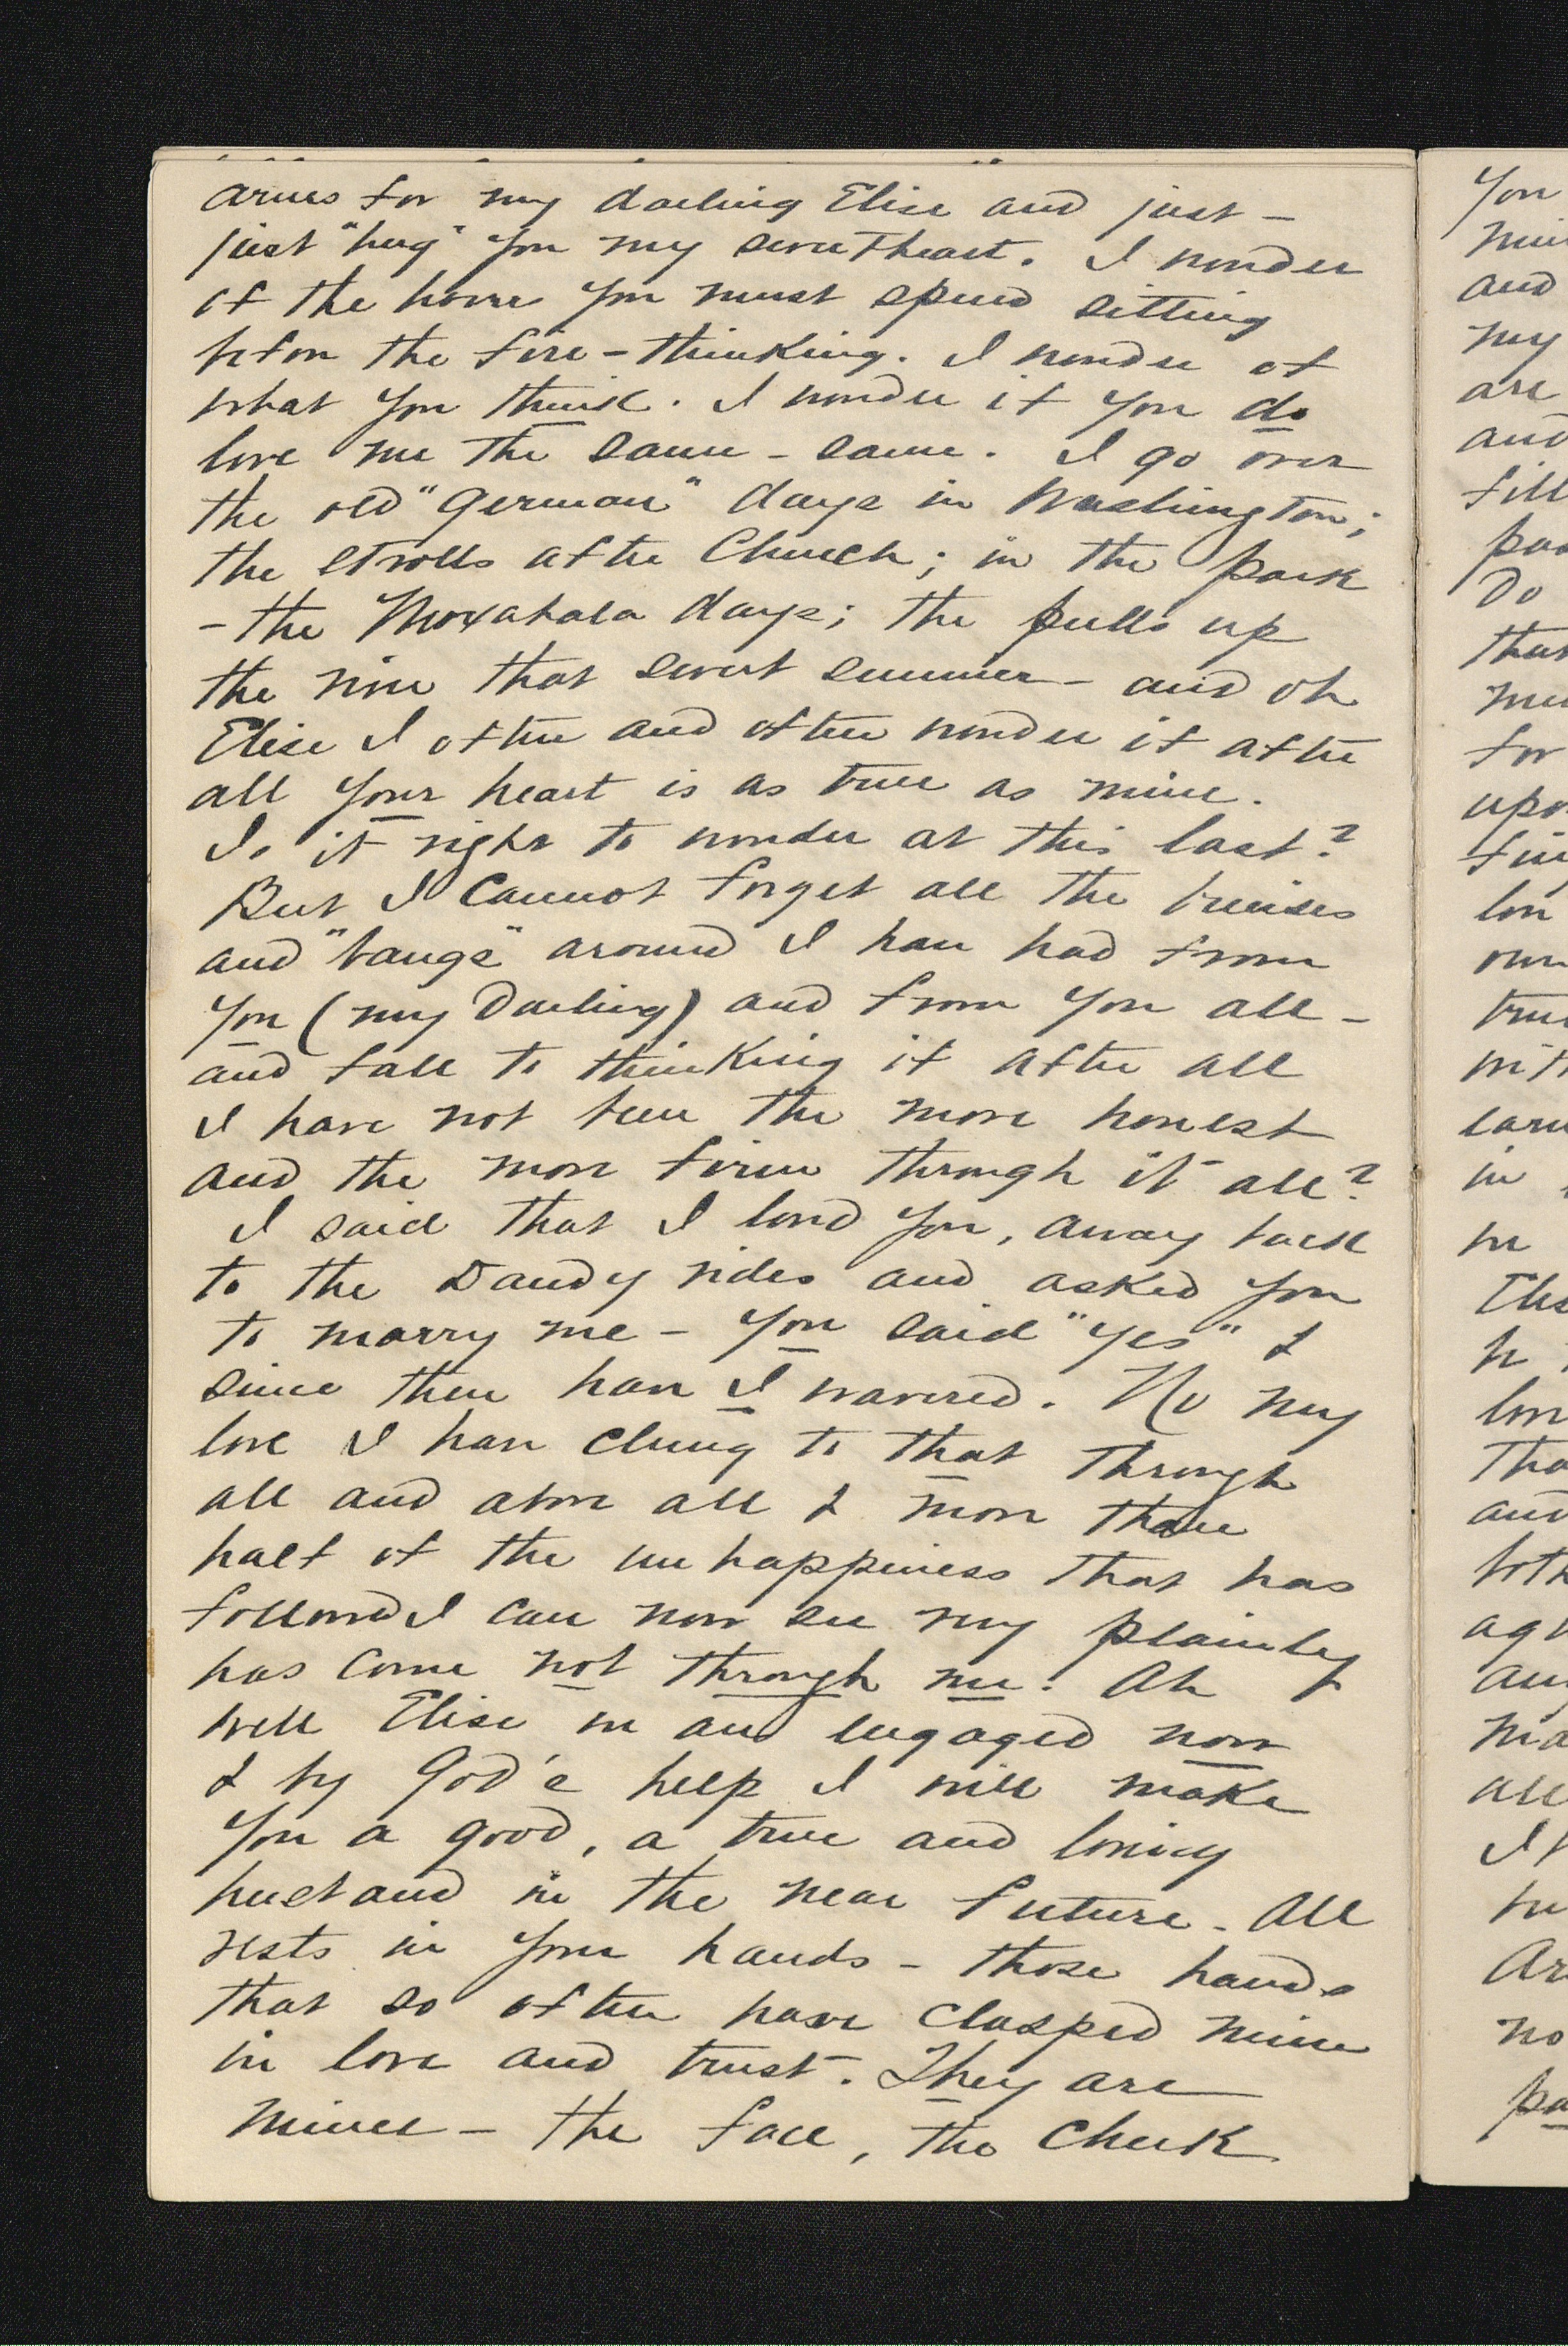 arms for my darling Elise and just —
just "hug" you my sweetheart. I wonder
of the hours you must spend sitting
before the fire — thinking. I wonder of
what you think. I wonder if you do
love me the same — same. I go over
the old "German" days in Washington;
the strolls after Church; in the park
— the Moxahala days; the pulls up
the river that sweet summer — and oh
Elise I often and often wonder if after
all your heart is as true as mine.
Is it right to wonder at this last?
But I cannot forget all the bruises
and "bangs" around I have had from
you (my Darling) and from you all —
and fall to thinking if after all
I have not been the more honest
and the more firm through it all?
I said that I loved you, away back
to the Dandy rides and asked you
to marry me — you said "yes" &
since then have I wavered. No my
love I have clung to that through
all and above all & more than
half of the unhappiness that has
followed I can now see my plainly
has come not through me. Ah
well Elise we are engaged now
& by God's help I will make
you a good, a true and loving
husband in the near future — All
rests in your hands — those hands
that so often have clasped mine
in love and trust. They are
mine — the face, the cheek
You
and
my
are
and
Do
for
in